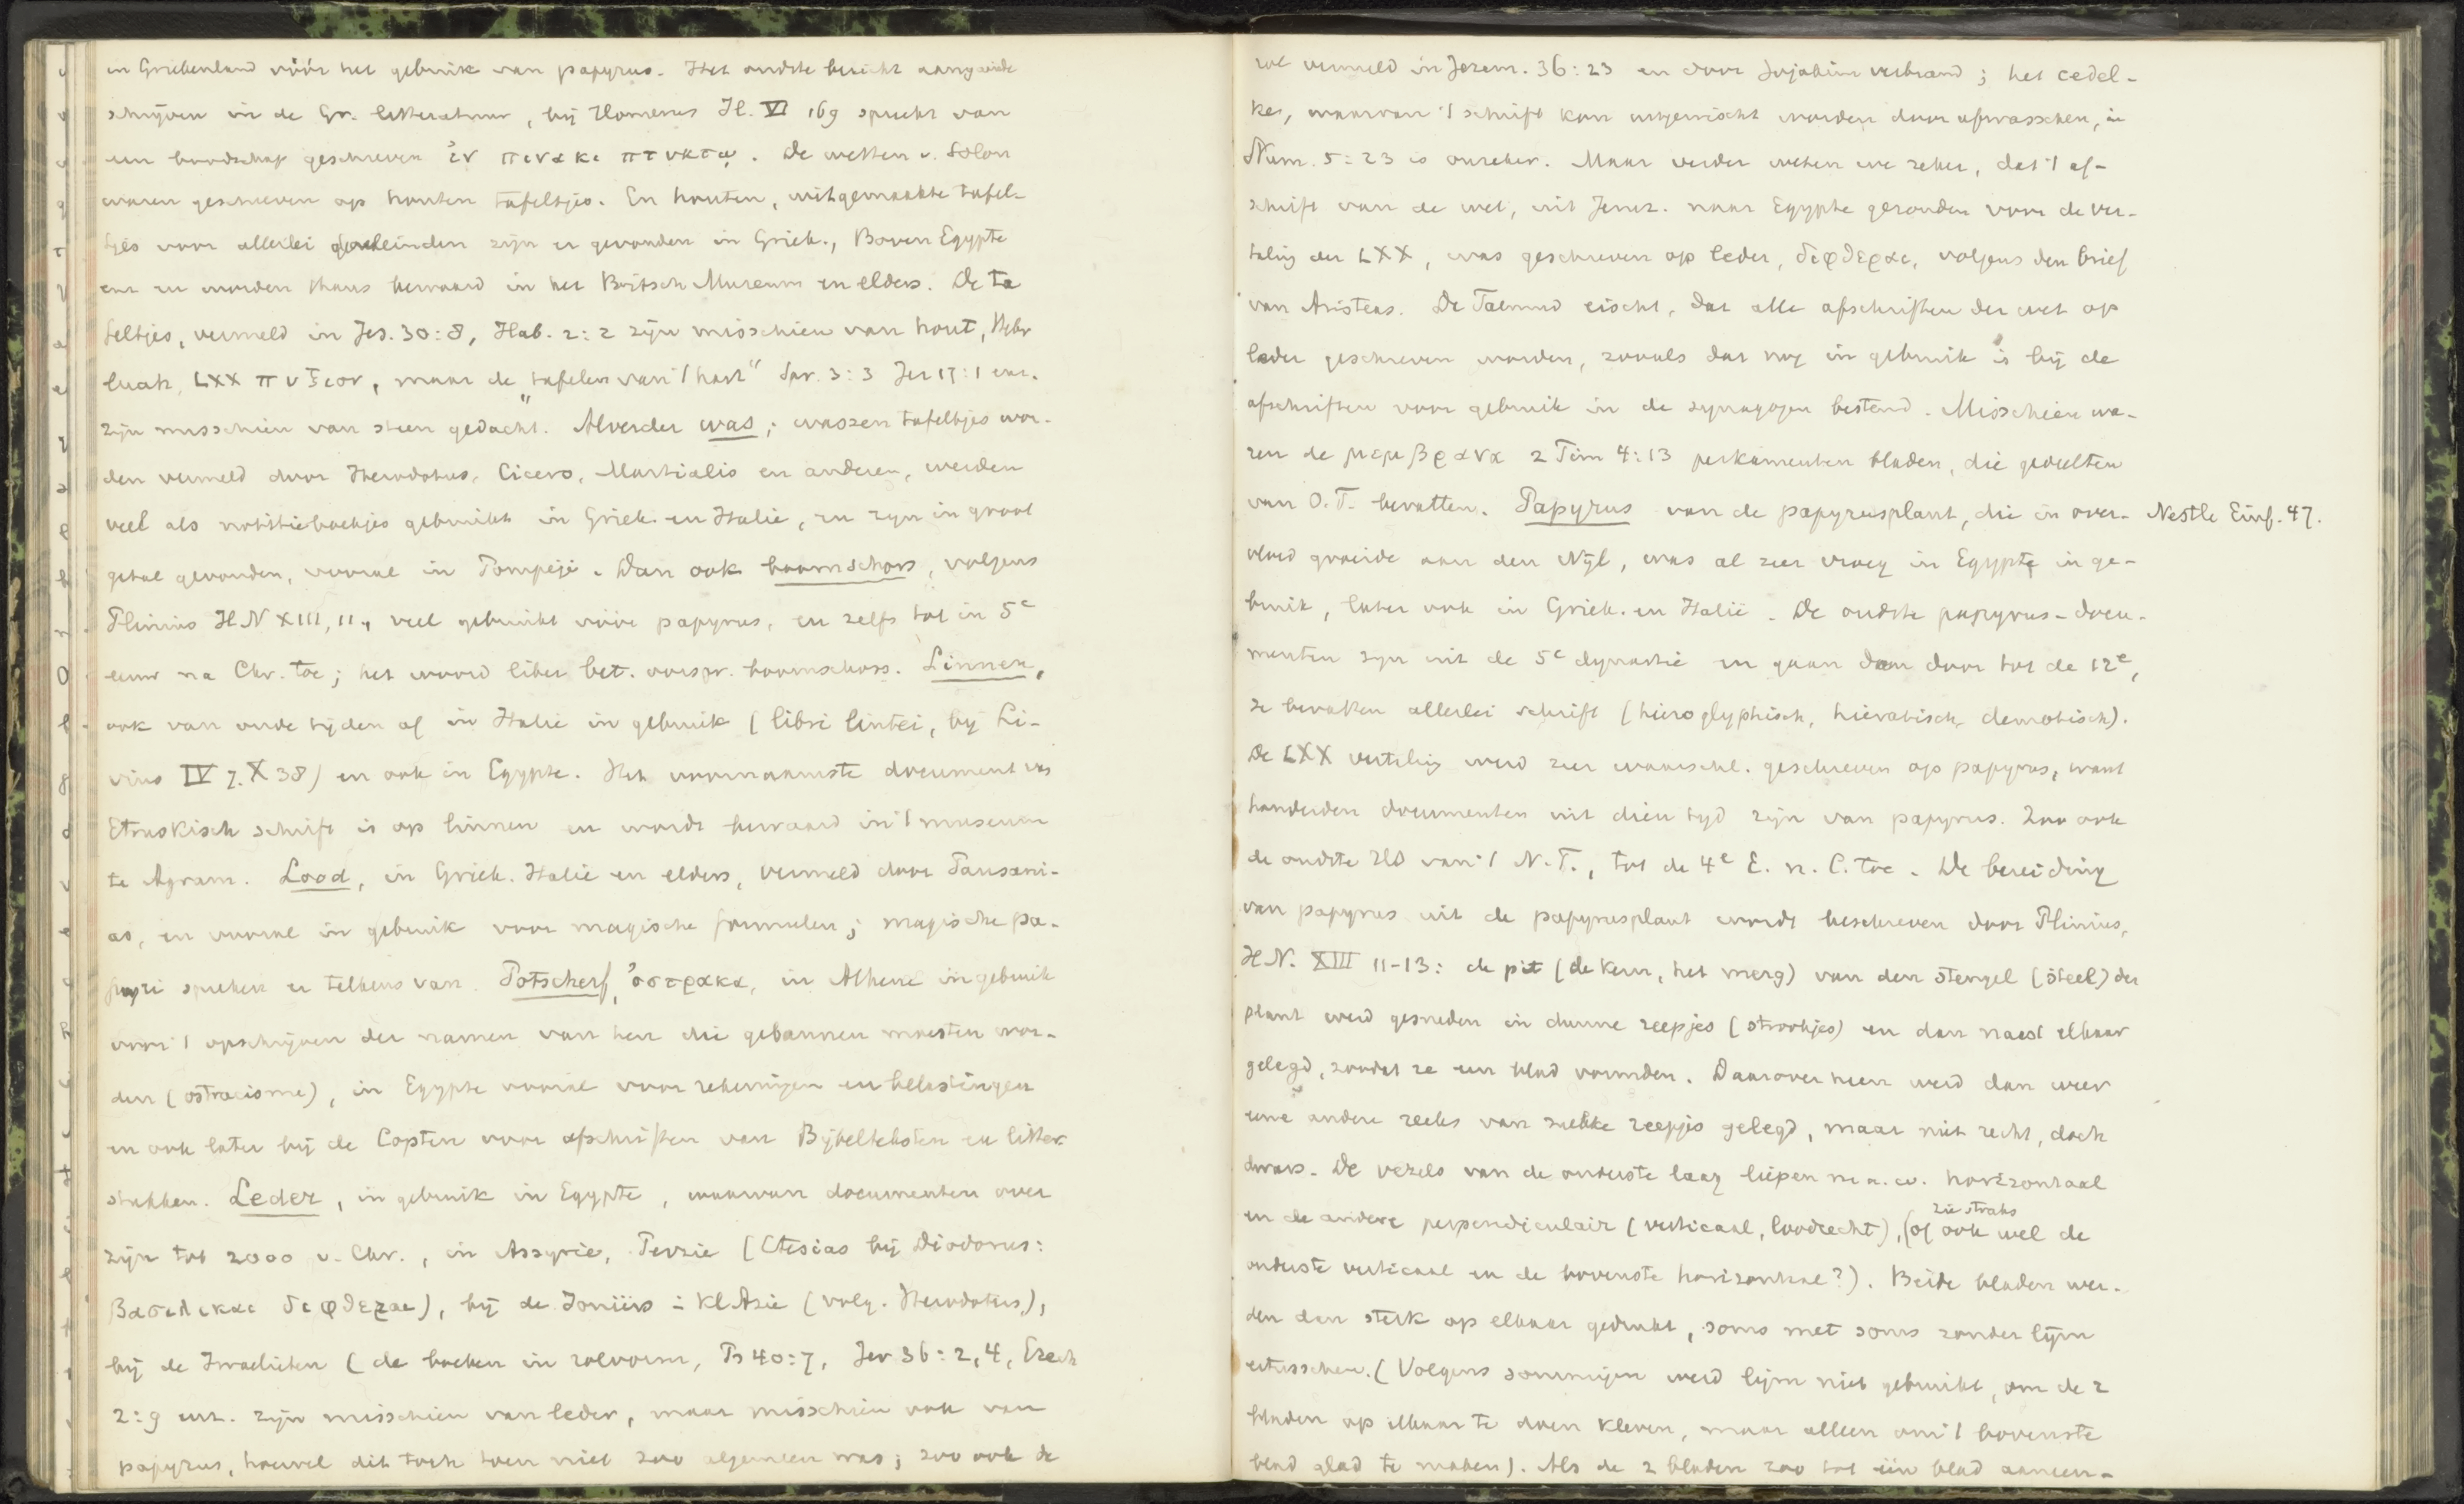 in Griekenland vóór het gebruik van papyrus. Het oudste bericht aangaande
schrijven in de Gr. litteratuur, bij Homerus Il. VI 169 spreekt van
een boodschap geschreven ἐν πινακι πτυκτῳ. De wetten v. Solon
waren geschreven op houten tafeltjes. En houten, witgemaakte tafel-
tjes voor allerlei doeleinden zijn er gevonden in Griek., Boven Egypte
enz en worden thans bewaard in het Britsch Museum en elders. De ta
feltjes, vermeld in Jes. 30:8, Hab. 2:2 zijn misschien van hout, Hebr
luach, LXX πυξιον, maar de "tafelen van 't hart" Spr. 3:3 Jer 17:1 enz.
zijn misschien van steen gedacht. Alverder was; wassen tafeltjes wor-
den vermeld door Herodotus, Cicero, Martialis en anderen, werden
veel als notitieboekjes gebruikt in Griek. en Italie, en zijn in groot
getal gevonden, vooral in Pompeji. Dan ook boomschors, volgens
Plinius HN XIII, 11, veel gebruikt vóór papyrus, en zelfs tot in 5e
eeuw na Chr. toe; het woord liber bet. oorspr. boomschors. Linnen,
ook van oude tijden af in Italie in gebruik (libri lintei, bij Li-
vius IV 7. X 38) en ook in Egypte. Het voornaamste document van
Etruskisch schrift is op linnen en wordt bewaard in 't museum
te Agram. Lood, in Griek. Italie en elders, vermeld door Pausani-
as, en vooral in gebruik voor magische formulen; magische pa-
pyri spreken er telkens van. Potscherf, ὀστρακα, in Athene in gebruik
voor 't opschrijven der namen van hen die gebannen moesten wor-
den (ostracisme), in Egypte vooral voor rekeningen en belastingen
en ook later bij de Copten voor afschriften van Bijbelteksten en litter.
stukken. Leder, in gebruik in Egypte, waarvan documenten over
zijn tot 2000 v. Chr., in Assyrie, Perzie (Ctesias bij Diodorus:
βασιλικαι διφθεραι), bij de Ioniërs i Kl Azie (volg. Herodotus),
bij de Israelieten (de boeken in rolvorm, Ps 40:7, Jer 36:2,4, Ezech
2:9 enz. zijn misschien van leder, maar misschien ook van
papyrus, hoewel dit toch toen niet zoo algemeen was; zoo ook de
rol vermeld in Jerem. 36:23 en door Jojakim verbrand; het cedel-
ke, waarvan 't schrift kon uitgewischt worden door afwasschen, in
Num. 5:23 is onzeker. Maar verder weten we zeker, dat 't af-
schrift van de wet, uit Jeruz. naar Egypte gezonden voor de ver-
taling der LXX, was geschreven op leder, διφθεραι, volgens den brief
van Aristeas. De Talmud eischt, dat alle afschriften der wet op
leder geschreven worden, zooals dat nog in gebruik is bij de
afschriften voor gebruik in de synagogen bestemd. Misschien wa-
ren de μεμβρανα 2 Tim 4:13 perkamenten bladen, die gedeelten
van O.T. bevatten. Papyrus van de papyrusplant, die in over-
Nestle Einf. 47.
vloed groeide aan den Nijl, was al zeer vroeg in Egypte in ge-
bruik, later ook in Griek. en Italië. De oudste papyrus-docu-
menten zijn uit de 5e dynastie en gaan dan door tot de 12e,
ze bevatten allerlei schrift (hieroglyphisch, hieratisch, demotisch).
De LXX vertaling werd zeer waarschl. geschreven op papyrus, want
honderden documenten uit dien tijd zijn van papyrus. Zoo ook
de oudste HS van 't N.T., tot de 4e E. n. C. toe. De bereiding
van papyrus uit de papyrusplant wordt beschreven door Plinius,
HN. XIII 11-13: de pit (de kern, het merg) van den stengel (steel) der
plant werd gesneden in dunne reepjes (strookjes) en dan naast elkaar
gelegd, zoodat ze een blad vormden. Daarover heen werd dan weer
eene andere reeks van zulke reepjes gelegd, maar niet recht, doch
dwars. De vezels van de onderste laag liepen m.a.w. horizontaal
zie straks
en de andere perpendiculair (verticaal, loodrecht), (of ook wel de
onderste verticaal en de bovenste horizontaal?). Beide bladen wer-
den dan sterk op elkaar gedrukt, soms met soms zonder lijm
ertusschen. (Volgens sommigen werd lijm niet gebruikt, om de 2
bladen op elkaar te doen kleven, maar alleen om 't bovenste
blad glad te maken). Als de 2 bladen zoo tot één blad aaneen-